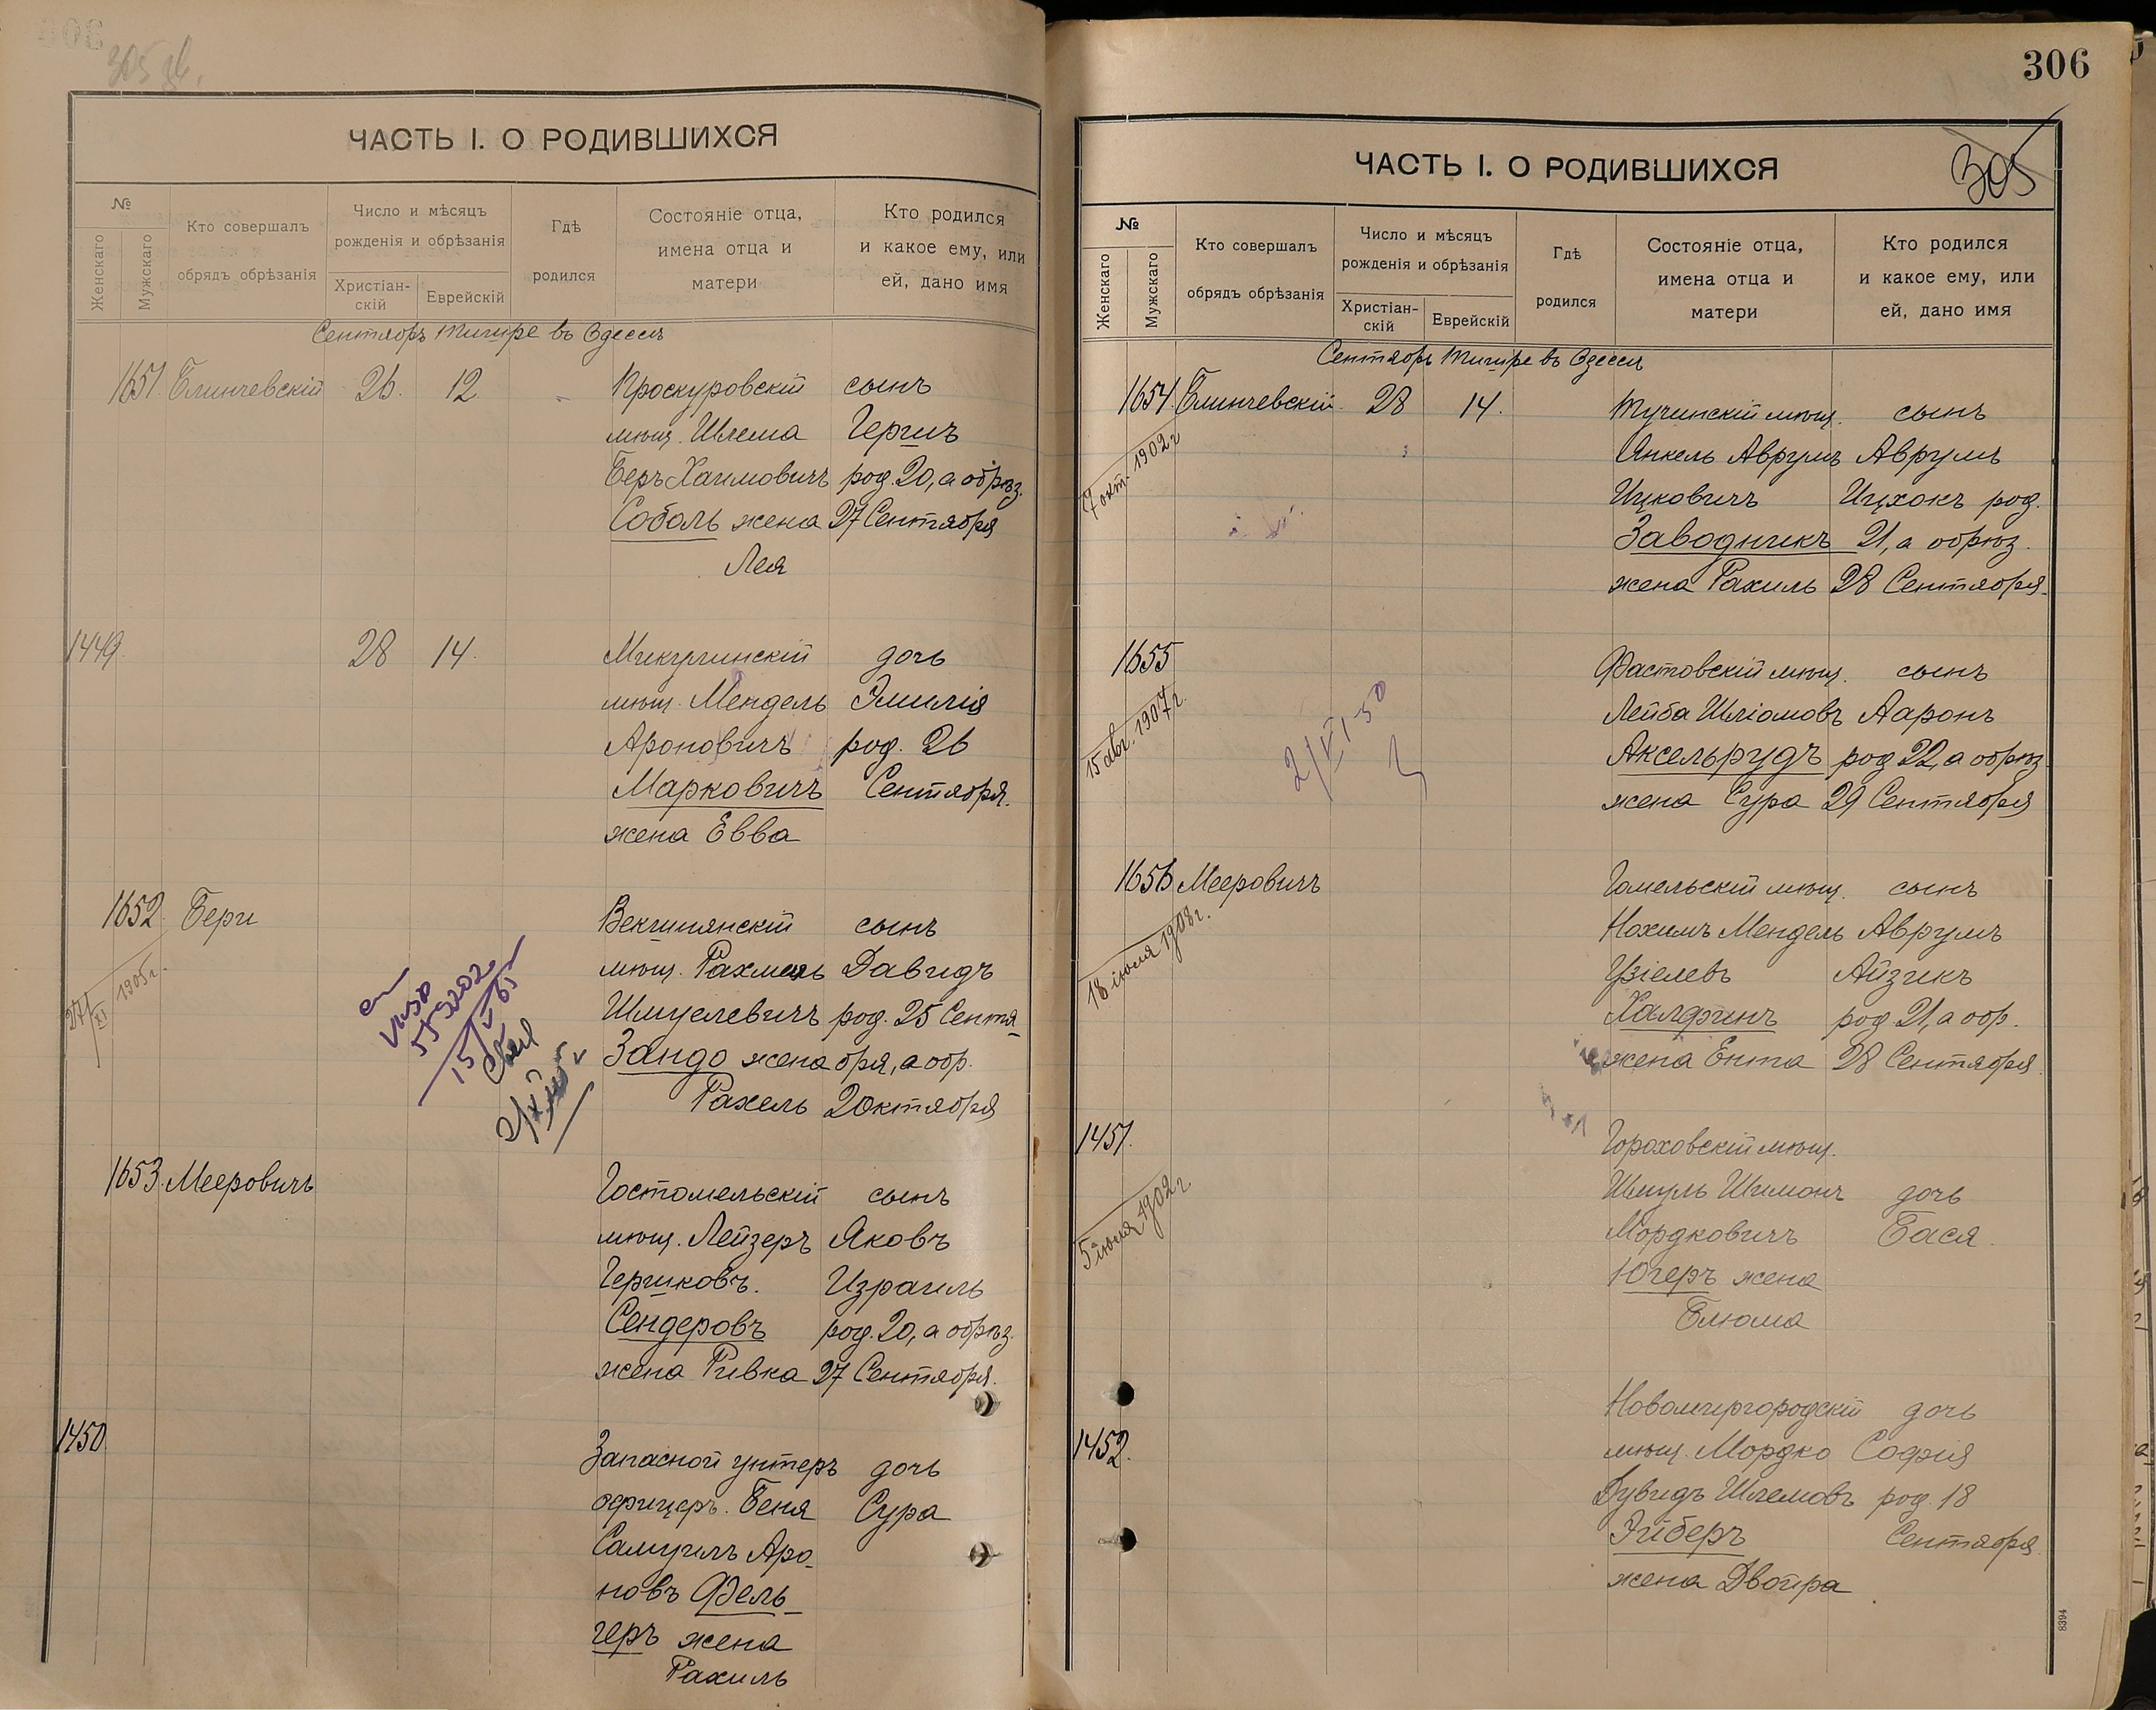 305 об.
ЧАСТЬ I. О РОДИВШИХСЯ
№
Женскаго
Мужскаго
Кто совершалъ
обрядъ обрѣзанія
Число и мѣсяцъ
рожденія и обрѣзанія
Христіан-
скій
Еврейскій
Гдѣ
родился
Состояніе отца,
имена отца и
матери
Кто родился
и какое ему, или
ей, дано имя
Сентябрь Тишре въ Одессѣ
1651. Блинчевскій 26. 12. Проскуровскій сынъ
мѣщ. Шлема Гершъ
Беръ Хаимовичъ род. 20, а обрѣз.
Соболь жена 27 Сентября
Лея
1449. 28 14. Микулинскій дочь
мѣщ. Мендель Эмилія
Ароновичъ род. 26
Марковичъ Сентября.
жена Евва
1652. Бери Векшнянскій сынъ
мѣщ. Рахмиль Давидъ
Шмуелевичъ род. 25 Сентя-
Зандо жена бря, а обр.
Рахель 2 октября
27/XI 1905 г.
1653. Мееровичъ Гостомельскій сынъ
мѣщ. Лейзеръ Яковъ
Гершковъ. Израиль
Сендеровъ род. 20, а обрѣз.
жена Ривка 27 Сентября.
1450 Запасной унтеръ дочь
офицеръ. Беня Сура
Самуилъ Аро-
новъ Фель-
геръ жена
Рахиль
306
305
ЧАСТЬ I. О РОДИВШИХСЯ
№
Женскаго
Мужскаго
Кто совершалъ
обрядъ обрѣзанія
Число и мѣсяцъ
рожденія и обрѣзанія
Христіан-
скій
Еврейскій
Гдѣ
родился
Состояніе отца,
имена отца и
матери
Кто родился
и какое ему, или
ей, дано имя
Сентябрь Тишре въ Одессѣ
1654. Блинчевскій 28 14. Тучинскій мѣщ. сынъ
7 окт. 1902 г
Янкель Аврумъ Аврумъ
Ицковичъ Ицхокъ род.
Заводникъ 21, а обрѣз.
жена Рахиль 28 Сентября.
1655 Фастовскій мѣщ. сынъ
15 авг. 1907 г.
Лейба Шліомовъ Ааронъ
Аксельрудъ род 22, а обрѣз.
жена Сура 29 Сентября
2/VI-50
1656 Мееровичъ Гомельскій мѣщ. сынъ
18 іюля 1908 г.
Нохимъ Мендель Аврумъ
Узіелевъ Айзикъ
Халфинъ род 21, а обр.
жена Ента 28 Сентября.
1451. Гороховскій мѣщ.
5 іюля 1902 г
Шмуль Шимонъ дочь
Мордковичъ Бася.
Югеръ жена
Блюма
Новомиргородскій дочь
1452. мѣщ. Мордко Софія
Дувидъ Шлемовъ род. 18
Эйберъ Сентября
жена Двойра
8394